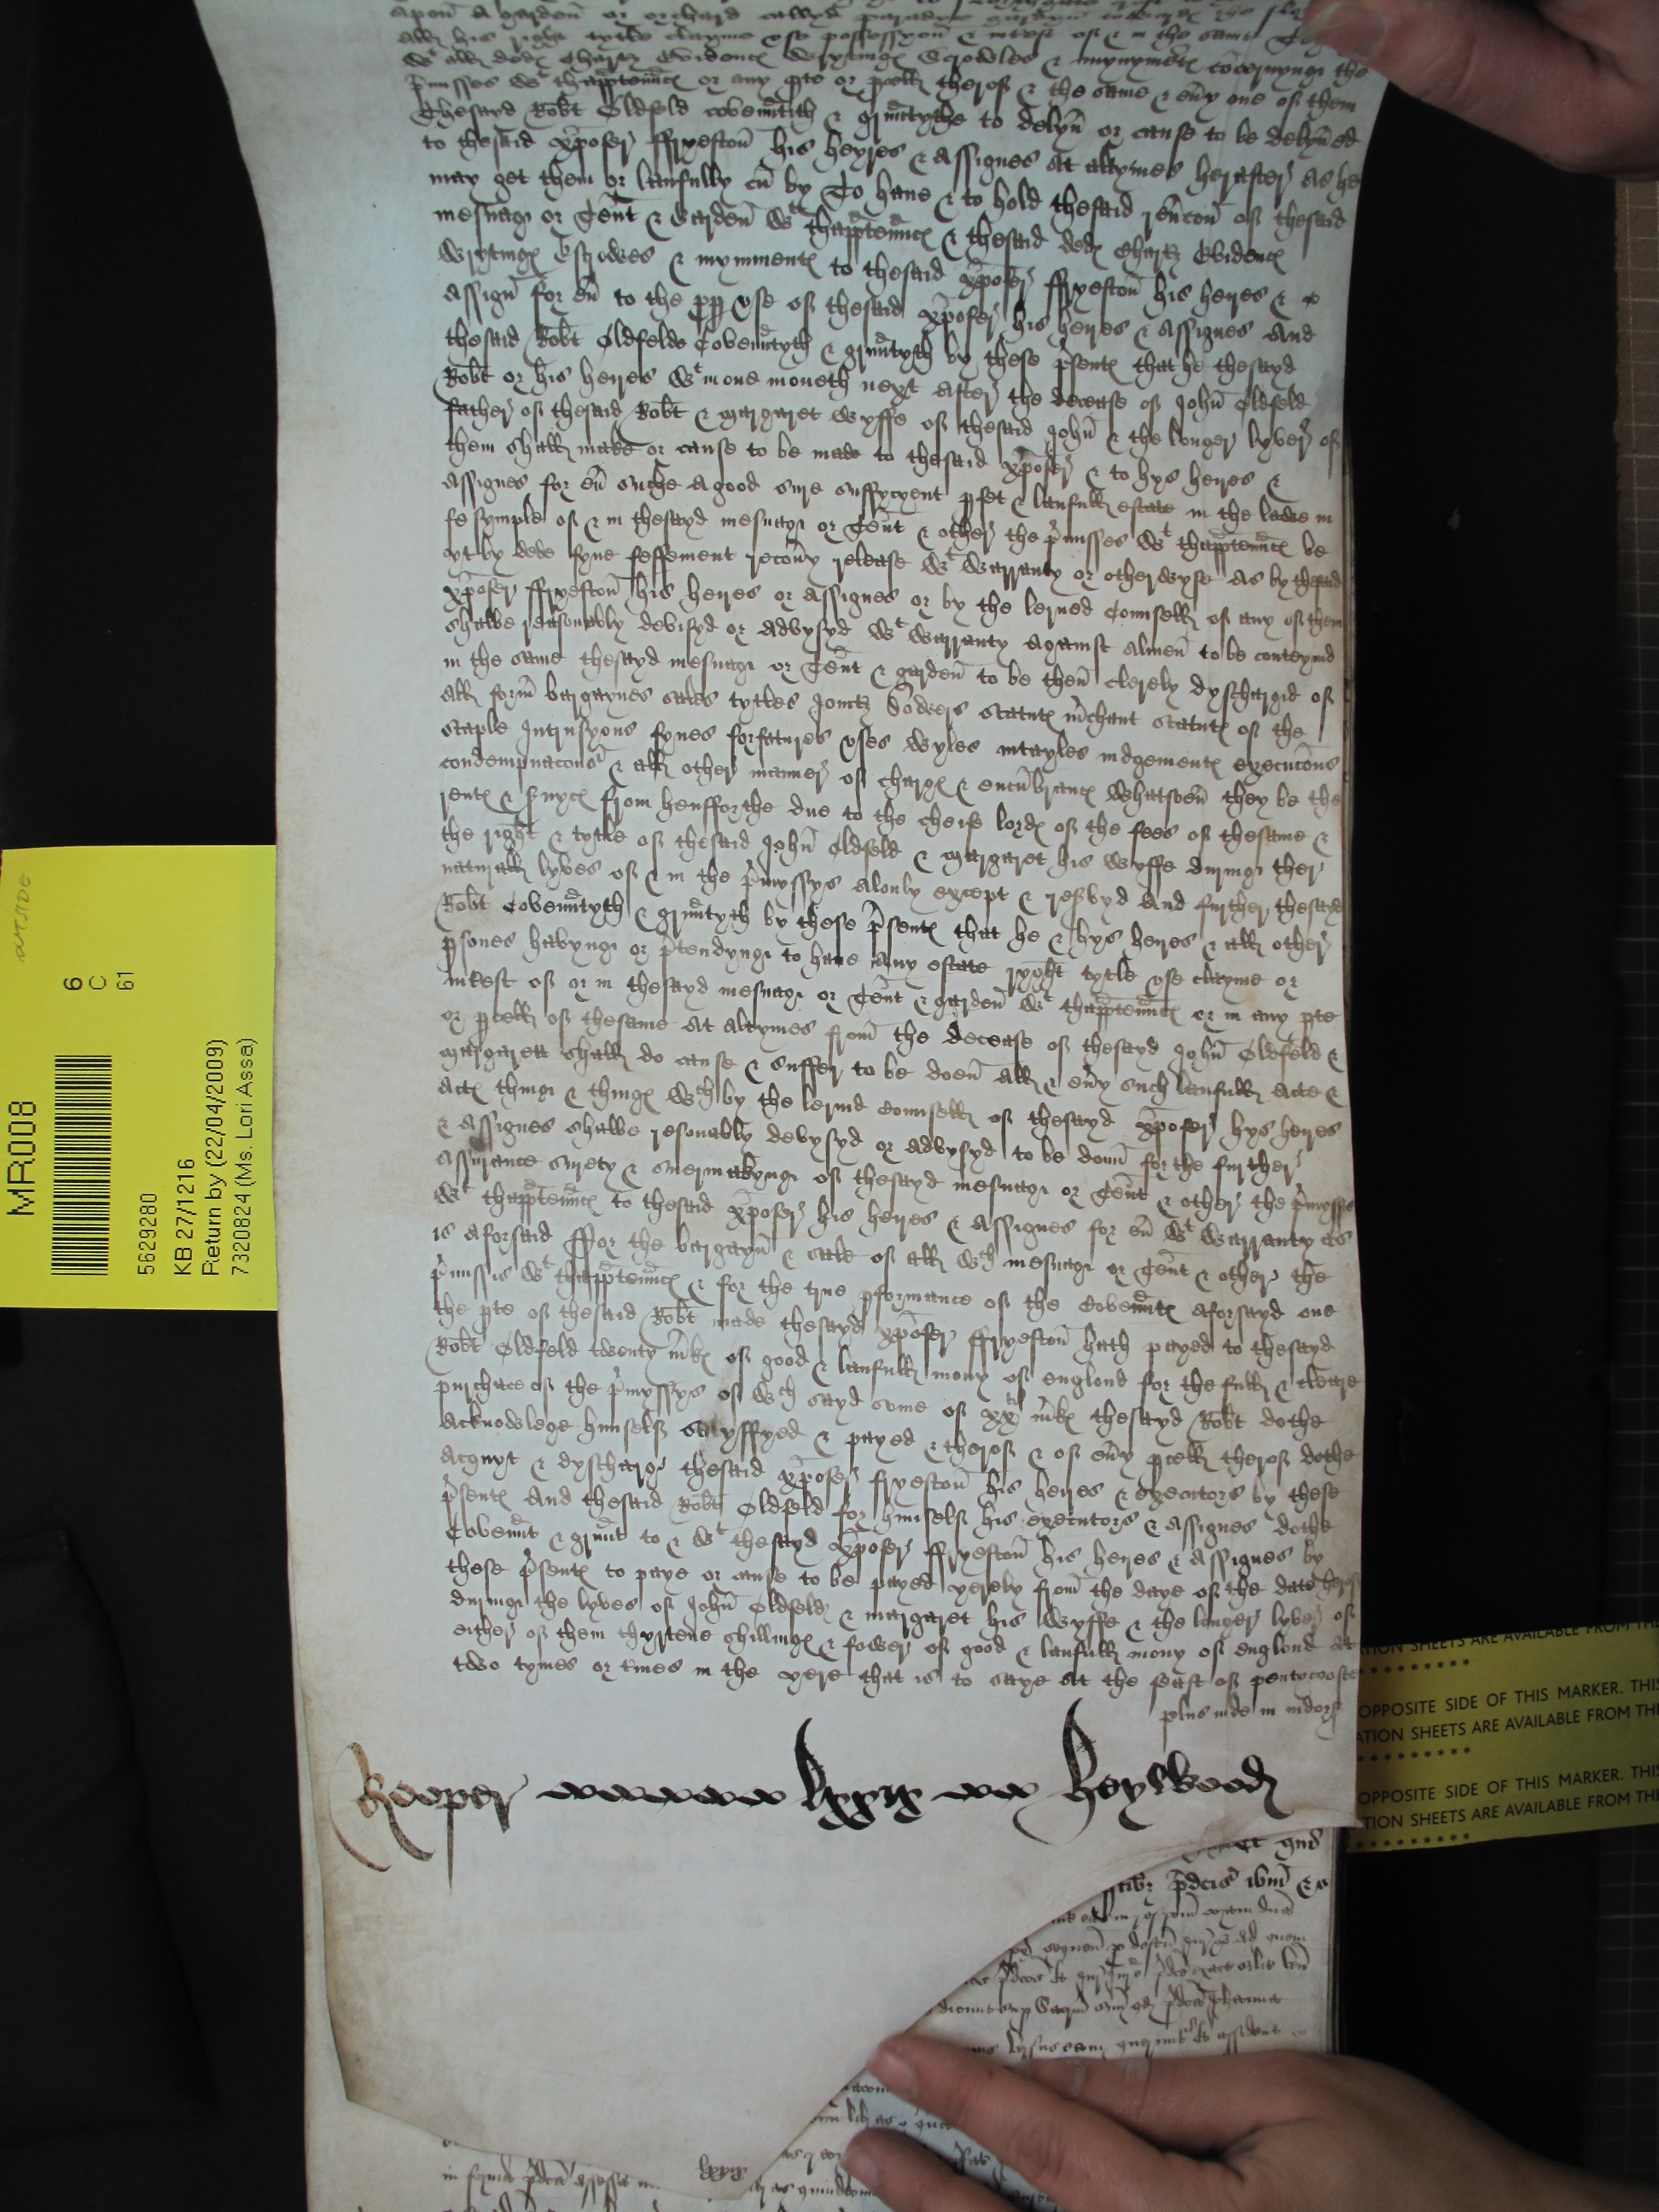 apon A garden or orchard callyd paradyse garden
all his right tytle clayme vse possessyon & intrest of & in the same
wt all dedes Charters Evidences wrytinges Scrowles & mynymentes concernyng the
p'misses wt thapp'tenances or any p'te or p'cell therof & the same & eu'y one of them
Thesayd Rob't Oldfeld coven'ntith & g'untythe to delyu' or cause to be delyu'ed
to thesaid xp'ofer ffryeston his heyres & Assignes at altymes herafter as he
may get them or laufully cu' by To haue & to hold thesaid reu'con of thesaid
mesuage or Ten't & Garden wt thapp'tenances & thesaid dedes Charters Evidences
wrytinges Escrowes & mynimentes to thesaid xp'ofer ffryeston his heyres &
Assign' for eu' to the pp' vse of thesaid xp'ofer his heyres & Assignes And
thesaid Rob't Oldfelde Coven'ntyth & g'untyth by these p'sentes that he thesayd
Rob't or his heyres wt'in one moneth next after the decease of John Oldfeld
father of thesaid Rob't & Margaret wyffe of thesaid John & the longer lyver of
them shall make or cause to be made to thesaid xp'ofer & to hys heyres &
Assignes for eu' suche A good sure suffycyent p'fet & laufull estate in the lawe in
fe symple of & in thesayd mesuage or Ten't & other the p'misses wt thapp'tenances be
yt by dede fyne feffement recou'y release wt warranty or otherwyse As by thesaid
xp'ofer ffryeston his heyres or Assignes or by the lerned Counsell of any of them
shalbe reasonably devisyd or advysyd wt warranty against almen to be conteynid
in the same thesayd mesuage or Ten't & garden to be then clerely dyschargid of
all form' bargaynes sales tytles Jointers Dowers statutes m'chant statutes of the
staple Intrusyons fynes forfatures vses wyles intayles iudgementes execucons
condempnacons & all other manner of charges & encu'brances whatsoeu' they be the
rentes & s'uyces from henfforthe due to the cheife lordes of the fees of thesame &
the right & tytle of thesaid John Oldfeld & Margaret his wyffe during ther
naturall lyves of & in the p'myssys alonly except & res'vyd And further thesayd
Rob't Coven'ntyth & g'untyth by these p'sentes that he & hys heyres & all other
p'sones havyng or p'tendyng to haue Any estate ryght tytle vse clayme or
int'est of or in thesayd mesuage or Ten't & garden wt thapp'tenances or in any p'te
or p'cell of thesame At altymes from the decease of thesayd John Oldfeld &
Margarett shall do cause & suffer to be doen all & eu'y such laufull Acte &
Actes thing & thinges wch by the lernid Counsell of thesayd xp'ofer hys heyres
& Assignes shalbe resonably devysyd or advysyd to be donn for the further
Assurance surety & suermakyng of thesayd mesuage or Ten't & other the p'mysses
wt thapp'tenances to thesaid xp'ofer his heyres & Assignes for eu' wt warranty as
is aforsaid ffor the bargayn & sale of all wch mesuage or Ten't & other the
p'missis wt thapp'tenances & for the true p'formance of the Coven'ntes aforsayd one
the p'te of thesaid Rob't made thesayd xp'ofer ffryeston hath payed to thesayd
Rob't Oldfeld twenty m'kes of good & laufull mony of englond for the full & cleare
purchace of the p'myssys of wch sayd some of xxti m'kes thesayd Rob't dothe
Acknowlege himself satysffyed & payed & therof & of eu'y p'cell therof dothe
Acquyt & dyscharge thesaid xp'ofer fryeston his heyres & executors by these
p'sentes And thesaid Rob't Oldfeld for himself his executors & Assignes dothe
Coven'nt & g'unt to & wt thesayd xp'ofer ffryeston his heyres & Assignes by
these p'sentes to paye or cause to be payed yerely from the daye of the date herof
during the lyves of John Oldfeld & margaret his wyffe & the longer lyver of
either of them thyrtene shillinges & fower of good & laufull mony of englond At
two tymes or times in the yere that is to saye at the feast of pentecoste
plus inde in indors'
Rooper lxxix Heywood
MR008
6
C
61
5629280
KB 27/1216
Return by (22/04/2009)
7320824 (Ms. Lori Assa)
ATION SHEETS ARE AVAILABLE FROM THE
*********
OPPOSITE SIDE OF THIS MARKER. THIS
ATION SHEETS ARE AVAILABLE FROM THE
*********
OPPOSITE SIDE OF THIS MARKER. THIS
ATION SHEETS ARE AVAILABLE FROM THE
*********